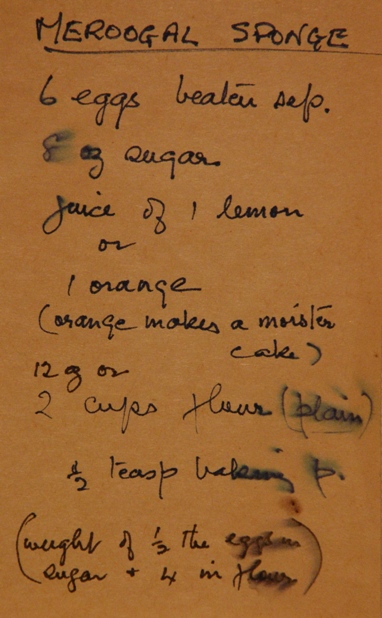 MEROOGAL SPONGE
6 eggs beaten sep.
8 oz sugar.
juice of 1 lemon
or
1 orange
(orange makes a moister
cake)
12 oz or
2 cups flour (plain)
½ teasp baking p.
(weight of ½ the eggs in
sugar + 4 in flour)